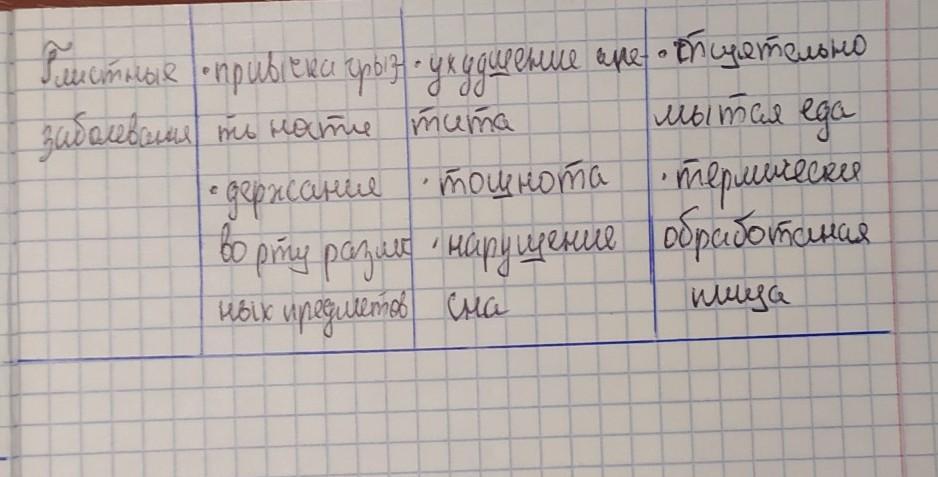 Глистные
заболевания
· привычка грыз
ть ногти
· держание
во рту различ
ных предметов
· ухудшение аппе-
тита
· тошнота
· нарушение
сна
· тщательно
мытая еда
· термически
обработаная
пища